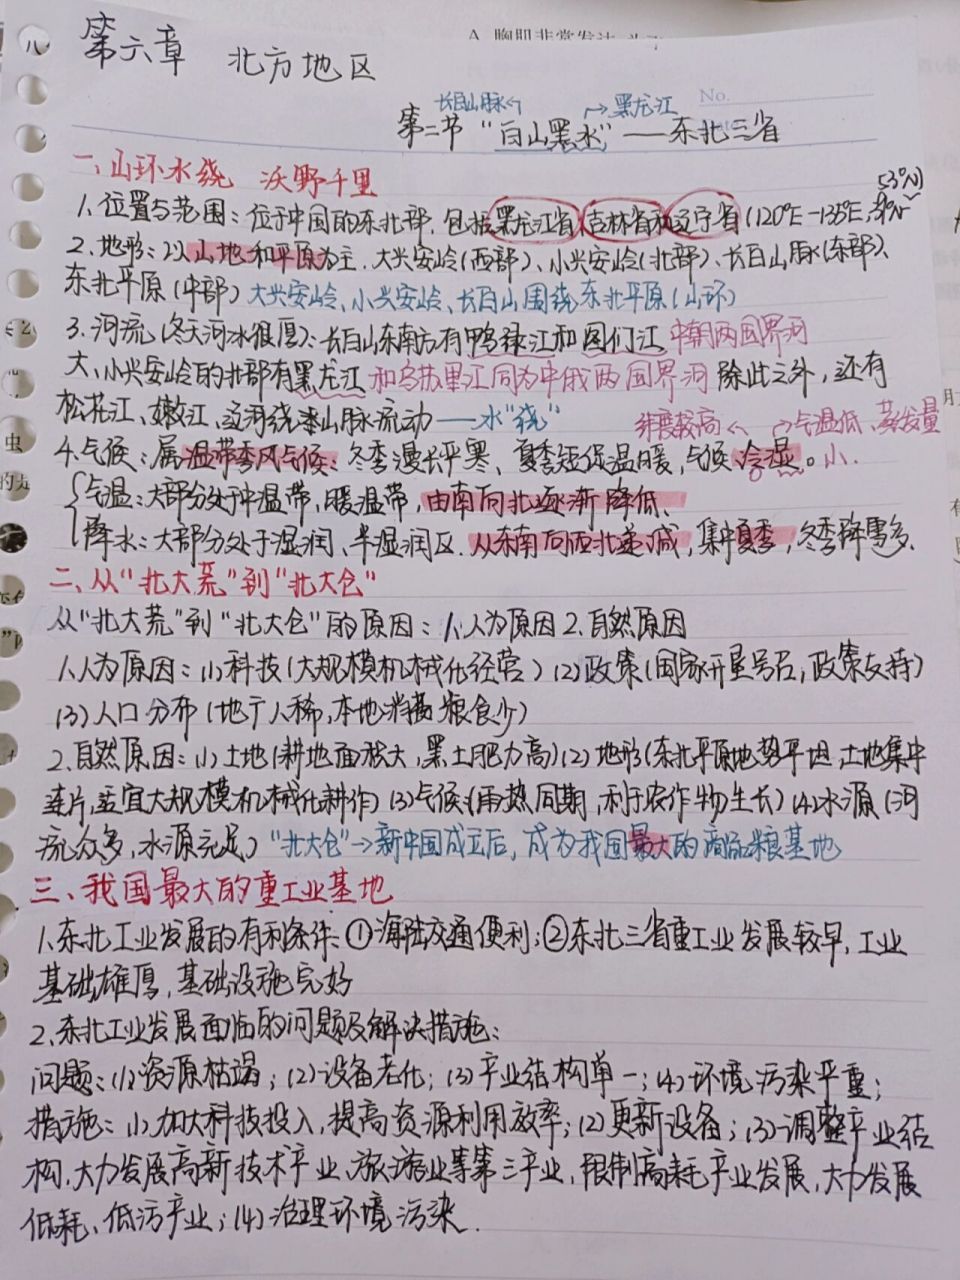 第六章 北方地区
长白山脉← →黑龙江 No.
第二节 “白山黑水”——东北三省
一、山环水绕 沃野千里
(53°N)
1、位置与范围：位于中国的东北部，包括黑龙江省、吉林省和辽宁省(120°E-135°E,
2、地形：以山地和平原为主，大兴安岭(西部)、小兴安岭(北部)、长白山脉(东部)、
东北平原(中部) 大兴安岭、小兴安岭、长白山围绕东北平原(山环)
3、河流(冬天河冰很厚)：长白山东南方有鸭绿江和图们江 中朝两国界河
大、小兴安岭的北部有黑龙江 和乌苏里江同为中俄两国界河 除此之外，还有
松花江、嫩江、辽河绕着山脉流动——水“绕”
纬度较高← →气温低、蒸发量
4、气候：属温带季风气候：冬季漫长严寒、夏季短促温暖，气候冷湿。小.
气温：大部分处于中温带，暖温带，由南向北逐渐降低、
降水：大部分处于湿润、半湿润区，从东南向西北递减，集中夏季，冬季降雪多、
二、从“北大荒”到“北大仓”
从“北大荒”到“北大仓”的原因：1、人为原因 2、自然原因
1、人为原因：(1)科技(大规模机械化经营) (2)政策(国家开垦号召，政策支持)
(3)人口分布(地广人稀，本地消费粮食少)
2、自然原因：(1)土地(耕地面积大，黑土肥力高)(2)地形(东北平原地势平坦，土地集中
连片，适宜大规模机械化耕作) (3)气候(雨热同期，利于农作物生长) (4)水源(河
流众多，水源充足) “北大仓”→新中国成立后，成为我国最大的商品粮基地
三、我国最大的重工业基地
1、东北工业发展的有利条件：①海陆交通便利；②东北三省重工业发展较早，工业
基础雄厚，基础设施完好
2、东北工业发展面临的问题及解决措施：
问题：(1)资源枯竭；(2)设备老化；(3)产业结构单一；(4)环境污染严重；
措施：(1)加大科技投入，提高资源利用效率；(2)更新设备；(3)调整产业结
构，大力发展高新技术产业、旅游业等第三产业，限制高耗产业发展，大力发展
低耗、低污产业；(4)治理环境污染.